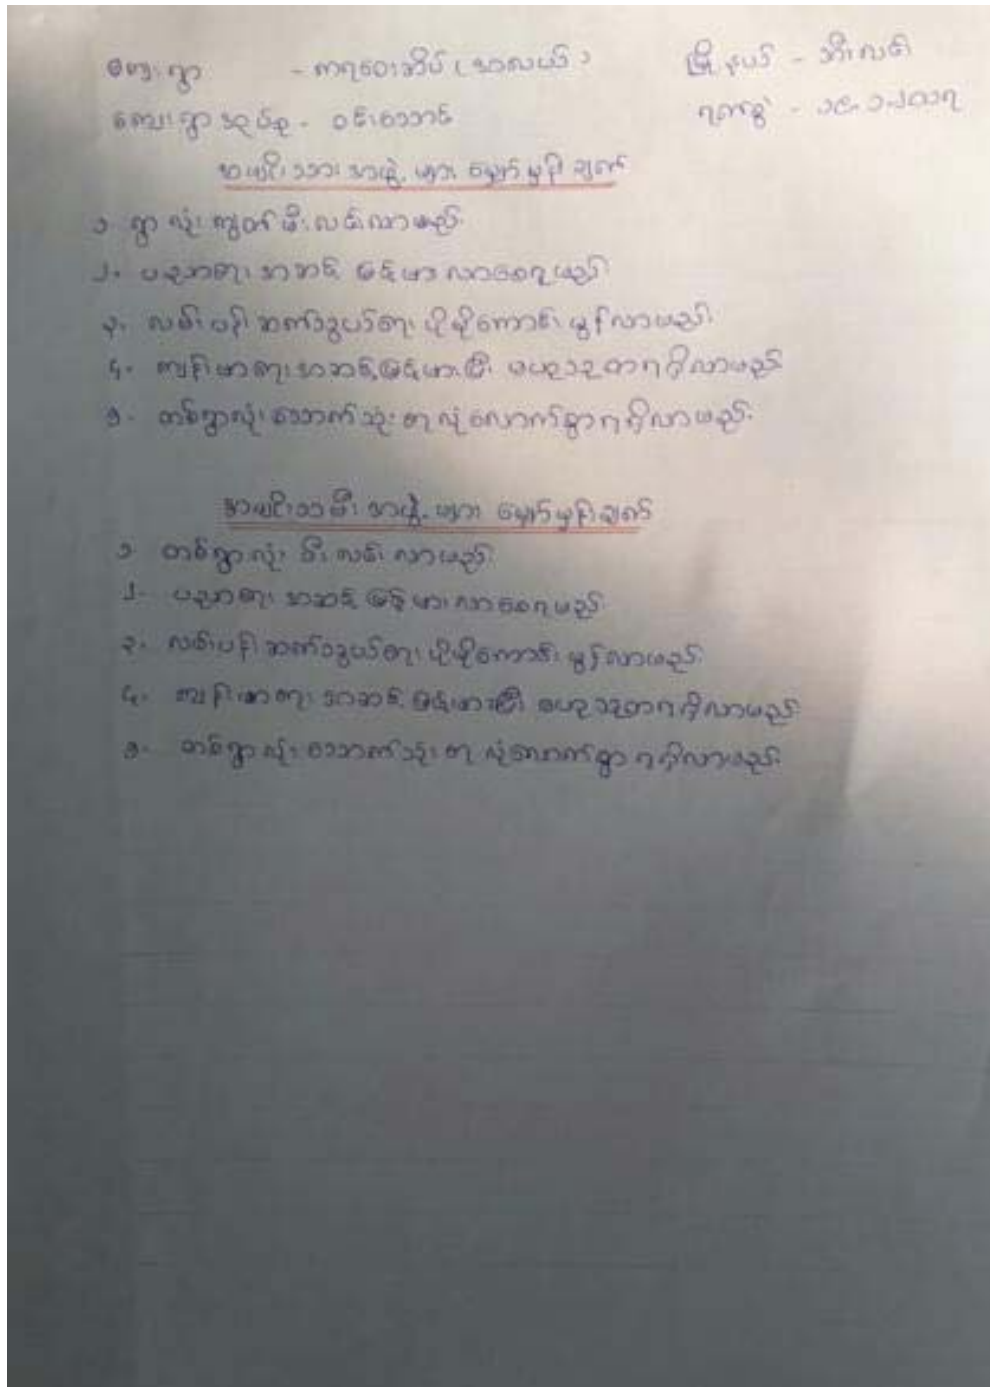 ကျေးရွာ - ကရဝေးဆိပ် (အလယ်) မြို့နယ် - ဘီးလင်း
ကျေးရွာအုပ်စု - ဝင်းဘောင် ရက်စွဲ - ၁၉.၁.၂၀၁၇
အမျိုးသားအဖွဲ့များ မျှော်မှန်းချက်
၁ ရွာလုံးကျွတ် မီးလင်းလာမည်။
၂. ပညာရေး အဆင့် မြင့်မားလာစေရမည်။
၃. လမ်းပန်းဆက်သွယ်ရေး ပိုမိုကောင်းမွန်လာမည်။
၄. ကျန်းမာရေး အဆင့်မြင့်မားပြီး ဗဟုသုတရရှိလာမည်
၅. တစ်ရွာလုံး သောက်သုံးရေ လုံလောက်စွာရရှိလာမည်။
အမျိုးသမီး အဖွဲ့များ မျှော်မှန်းချက်
၁ တစ်ရွာလုံး မီးလင်းလာမည်
၂. ပညာရေး အဆင့် မြင့်မားလာစေရမည်
၃. လမ်းပန်းဆက်သွယ်ရေး ပိုမိုကောင်းမွန်လာမည်
၄. ကျန်းမာရေး အဆင့်မြင့်မားပြီး ဗဟုသုတရရှိလာမည်
၅. တစ်ရွာလုံး သောက်သုံးရေ လုံလောက်စွာ ရရှိလာမည်။